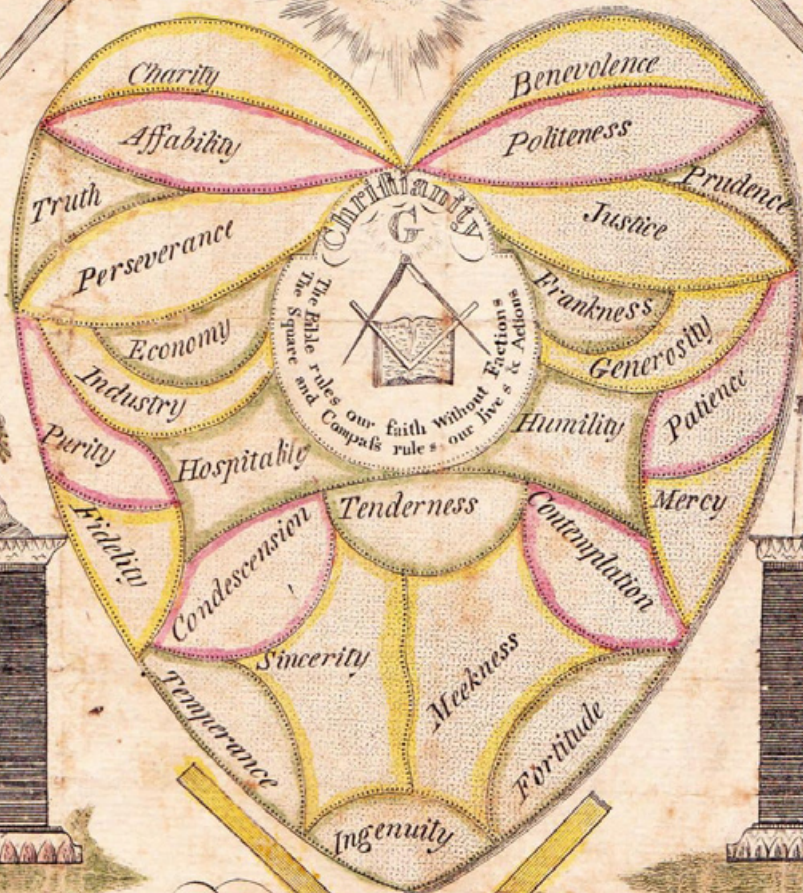 Charity
Benevolence
Affability
Politeness
Truth
Prudence
Perseverance
Justice
Christianity
G
The Bible rules our faith without Factions
The Square and Compaſs rules our lives & Actions
Economy
Frankness
Industry
Generosity
Purity
Patience
Hospitable
Humility
Fidelity
Tenderness
Mercy
Condescension
Contemplation
Sincerity
Meekness
Temperance
Fortitude
Ingenuity